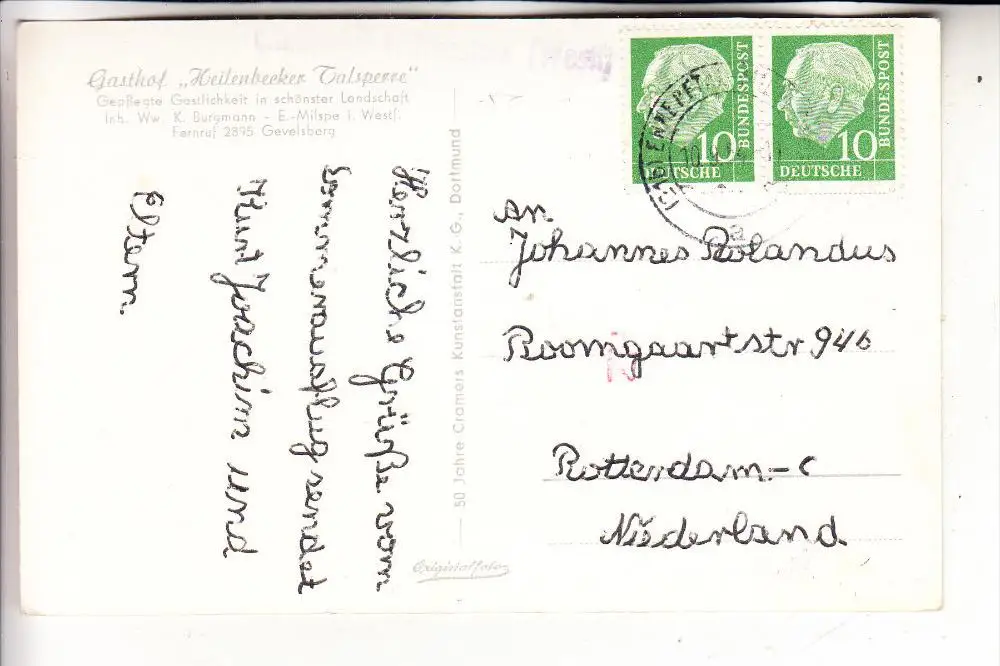 Gasthof „Heilenbecker Talsperre"
Gepflegte Gastlichkeit in schönster Landschaft
Inh. Ww. K. Burgmann – E.-Milspe i. Westf.
Fernruf 2895 Gevelsberg
Herzliche Grüße vom
sommerausflug sendet
Joachim und
Eltern.
50 Jahre Cramers Kunstanstalt K.G., Dortmund
Originalfoto
10
BUNDESPOST
DEUTSCHE
10
BUNDESPOST
DEUTSCHE
a
An.
Johannes Rolandus
Roomgaartstr 94b
Rotterdam.-C
Niederland